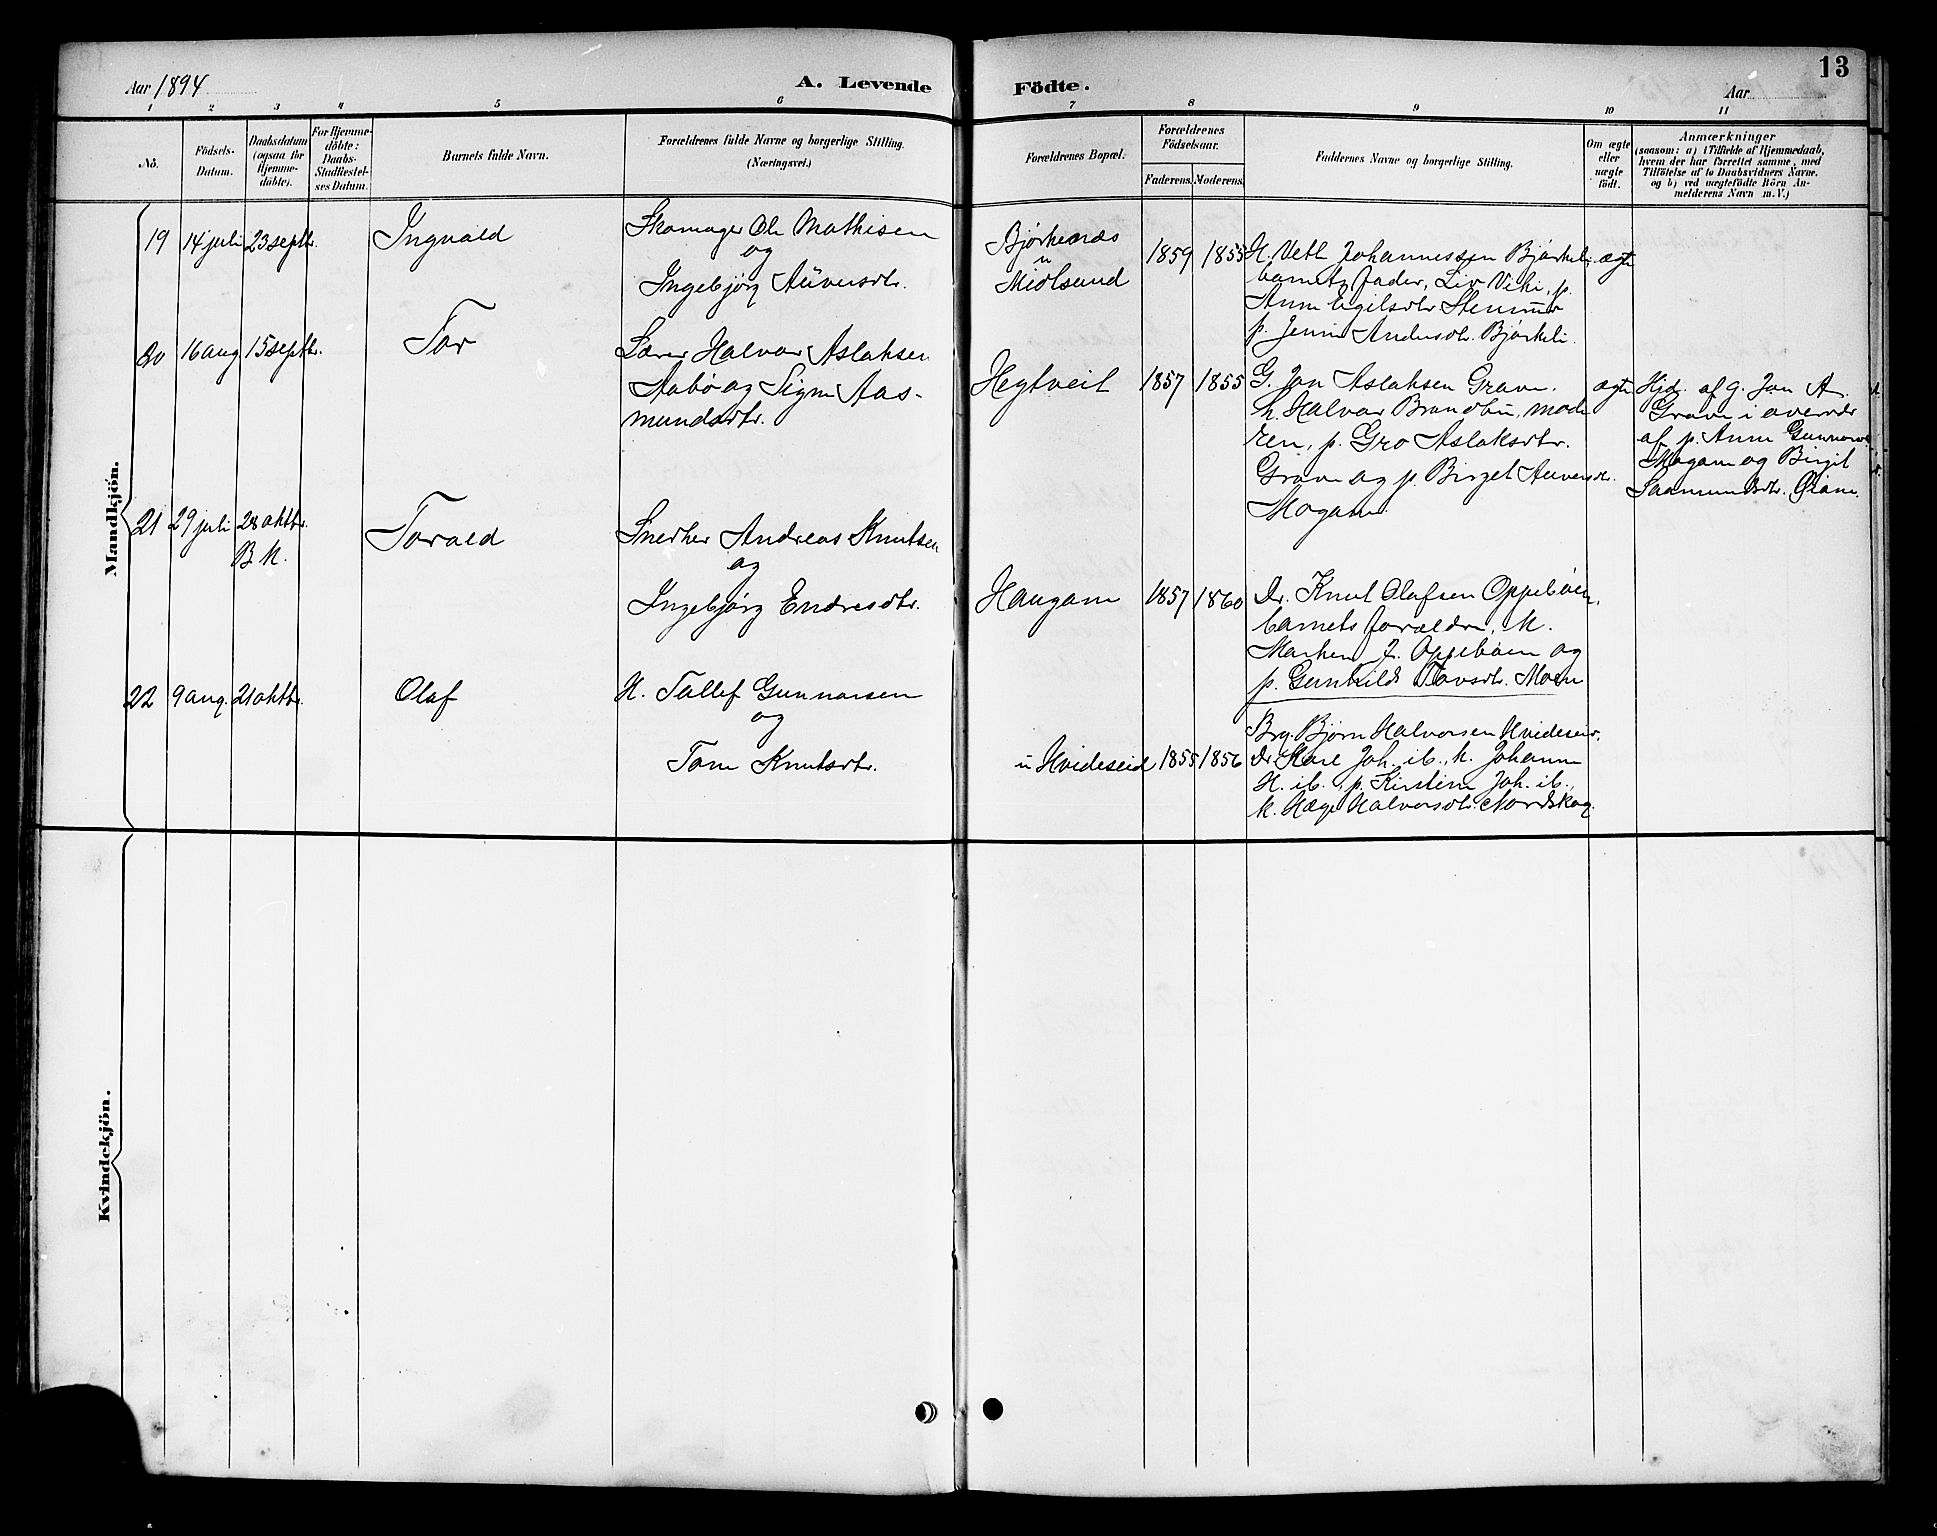 13
Aar 1894
A. Levende
Födte.
Aar
1 2 3 4 5 6 7 8 9 10 11
No.
Födsels-
Datum.
Daabsdatum
(ogsaa for
Hjemme-
döbte).
For Hjemme-
döbte:
Daabs-
Stadfæstel-
ses Datum.
Barnets fulde Navn.
Forældrenes fulde Navne og borgerlige Stilling.
(Næringsvei.)
Forældrenes Bopæl.
Forældrenes
Födselsaar.
Faderens. Moderens.
Faddernes Navne og borgerlige Stilling.
Om ægte
eller
uægte
födt.
Anmærkninger
(saasom: a) i Tilfælde af Hjemmedaab,
hvem der har forrettet samme, med
Tilföielse af to Daabsvidners Navne.
og b) ved uægtefödte Börn An-
melderens Navn m. V.)
Mandkjön.
19 14 juli 23 septbr. Ingvald
Skomager Ole Mathisen
og
Ingebjörg Auversdtr.
Bjørkenæs
u
Midtsund
1859 1855
H. Vetle Johannessen Bjørkeli,
barnets fader, Liv Vehe, p.
Anne Egilsdtr
p. Jennie Andersdtr. Bjørkeli.
ægte
20 16 aug 15 septbr. Tor
Lærer Halvor Aslaksen
Aabø og Signe Aas-
mundsdtr.
Hegtveit 1857 1855
G. Jon Aslaksen Grave.
h. Halvor Brandbu, mode
ren, p. Gro Aslaksdtr.
Grave og p. Birget Auversdtr.
Mogane.
ægte
Hjd. af g. Jon A.
Grave i overvær
af p. Anne Gunnarsd.
Mogane og Birgit
Saamundsdtr. Grave.
21 29 juli 28 oktbr. Torald
B K.
Snedker Andreas Knutsen
og
Ingebjørg Endresdtr.
Haugane 1857 1860
Dr. Knut Olafsen Oppebøen,
barnets forældre, K.
Marken J. Oppebøen og
p. Gunhild Tovsdtr. Moen
22 9 aug. 21 oktbr. Olaf
H. Tallef Gunnarsen
og
Tone Knutsdtr.
u Hvideseid 1855 1856
Brg. Bjørn Halvorsen Hvideseid.
Dr. Kare Joh. ib., k. Johanne
H. ib., p. Kirstine Joh. ib.,
k. Hæge Halvorsdtr. Nordskog.
Kvindekjön.